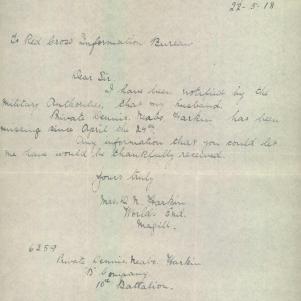 22-5-18
To Red Cross Information Bureau
Dear Sir.
I have been notified by the
Military Authorities, that my husband
Private Dennis. Meabs. Harkin has been
missing since April the 24th
Any information that you could let
me have would be thankfully received.
Yours truly
Mrs D. M. Harkin
World's End.
Magill.
6259
Private Dennis. Meabs. Harkin
B Company
10th Battalion.